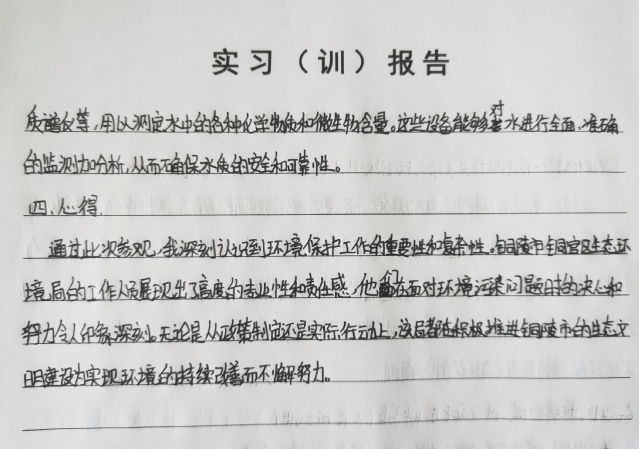 实习（训）报告
质谱仪等，用以测定水中的各种化学物质和微生物含量。这些设备能够对水进行全面、准确
的监测和分析，从而确保水质的安全和可靠性。
四、心得
通过此次参观，我深刻认识到环境保护工作的重要性和复杂性。铜陵市铜官区生态环
境局的工作人员展现出了高度的专业性和责任感，他们在面对环境污染问题时的决心和
努力令人印象深刻。无论是从政策制定还是实际行动上，该局都在积极推进铜陵市的生态文
明建设为实现环境的持续改善而不懈努力。